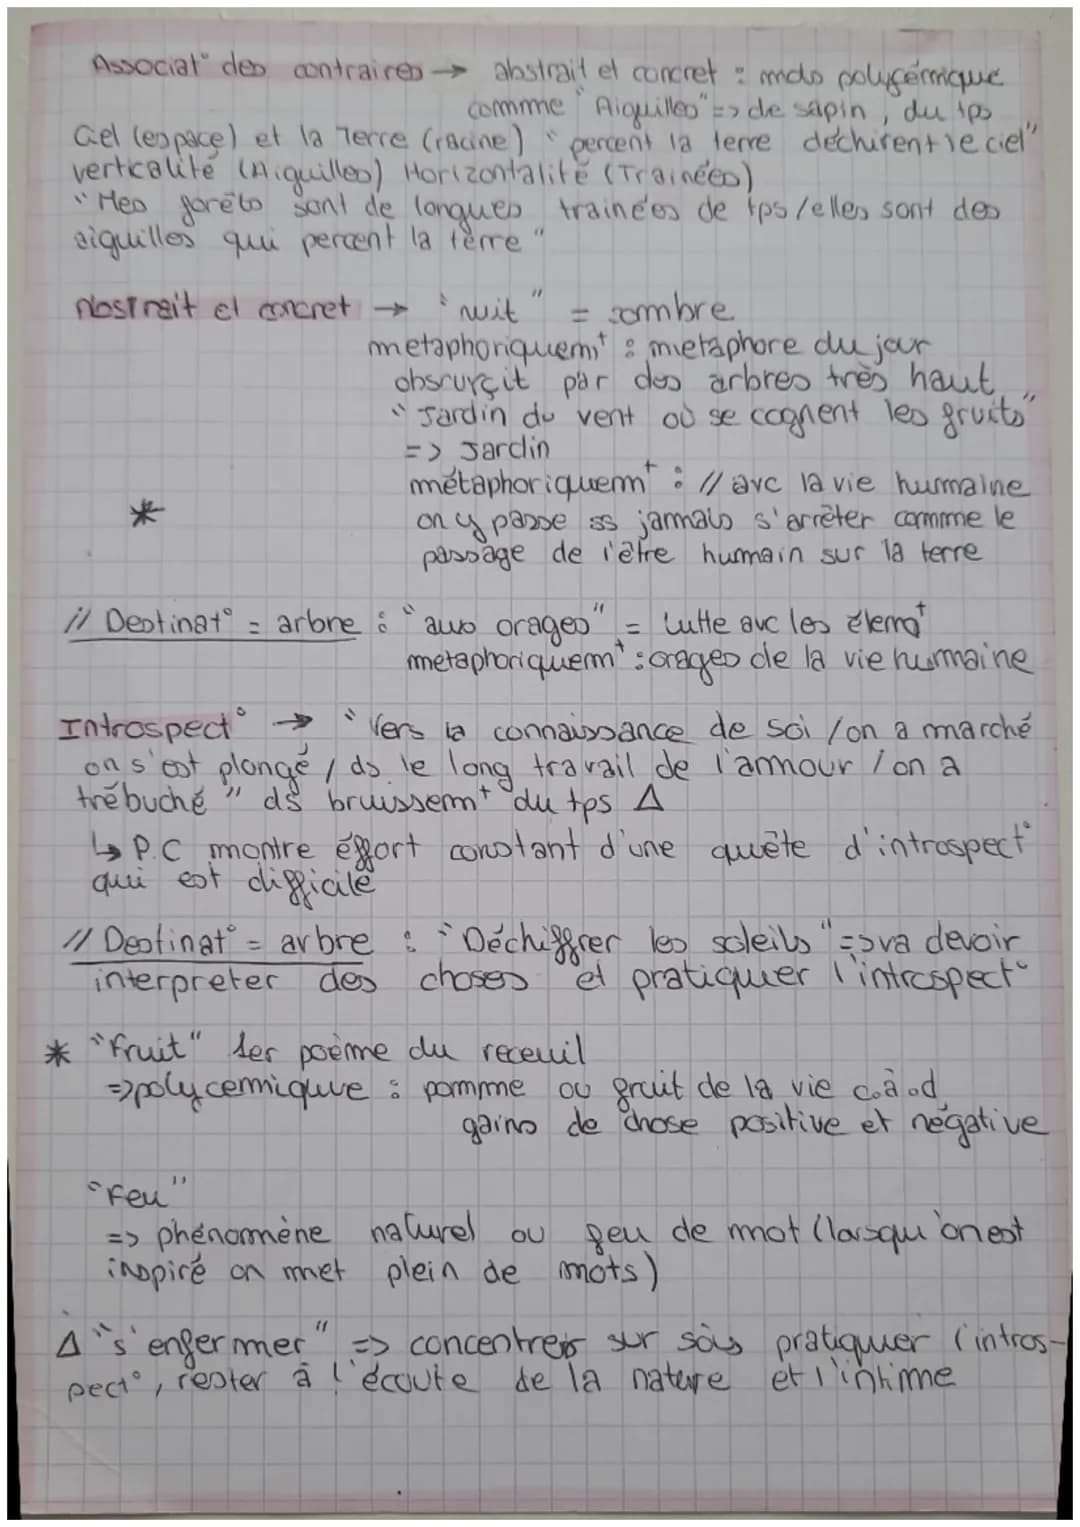 Associat° des contraires → abstrait et concret : mots polycémique
comme "Aiguilles" => de sapin, du tps
Ciel (espace) et la Terre (racine) "percent la terre déchirent le ciel"
verticalité (Aiguilles) Horizontalité (Trainées)
"Mes forêts sont de longues trainées de tps/elles sont des
aiguilles qui percent la terre"
Abstrait et concret → "nuit" = sombre
metaphoriquemt : métaphore du jour
obscurçit par des arbres très haut
"Jardin du vent où se cognent les fruits"
=> Jardin
métaphoriquemt : // avc la vie humaine
on y passe ss jamais s'arrêter comme le
*
passage de l'être humain sur la terre
// Destinat° = arbre : "aux orages" = Lutte avc les élemt
metaphoriquemt : orages de la vie humaine
Introspect° → "Vers la connaissance de soi / on a marché
on s'est plongé / ds le long travail de l'amour / on a
trébuché" ds bruissemt du tps Δ
↳ P.C montre éffort constant d'une quête d'introspect°
qui est difficile
// Destinat° = arbre : "Déchiffrer les soleils" => va devoir
interpreter des choses et pratiquer l'introspect°
* "Fruit" 1er poème du receuil
=> polycemique : pomme ou fruit de la vie c.à.d
gains de chose positive et négative
"Feu"
=> phénomène naturel ou feu de mot (lorsqu'on est
inspiré on met plein de mots)
Δ "s'enfermer" => concentrer sur sois pratiquer l'intros-
pect°, rester à l'écoute de la nature et l'intime